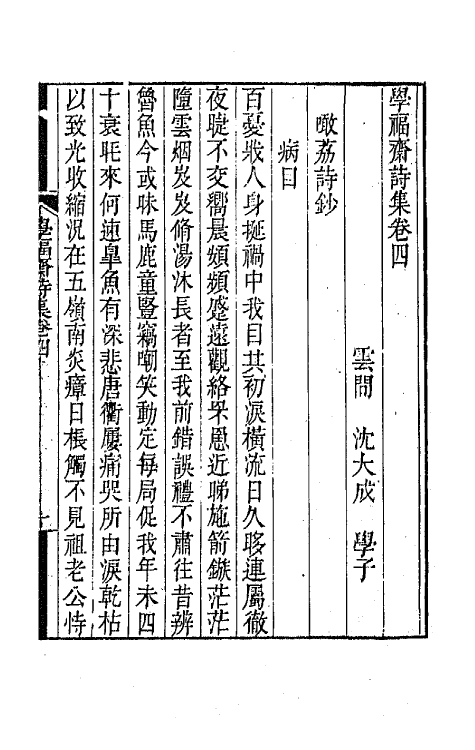 學福齋詩集卷四
雲間 沈大成 學子
噉荔詩鈔
病目
百憂戕人身挻禍中我目其初淚橫流日久眵連屬徹
夜睫不交嚮晨頻頻蹙遠觀絡罘罳近睇施箭鏃茫茫
墮雲烟岌岌脩湯沐長者至我前錯誤禮不肅往昔辨
魯魚今或昧馬鹿童豎竊嘲笑動定每局促我年未四
十衰眊來何速臯魚有深悲唐衢屢痛哭所由淚乾枯
以致光收縮況在五嶺南炎瘴日棖觸不見祖老公恃
學福齋詩集卷四
一